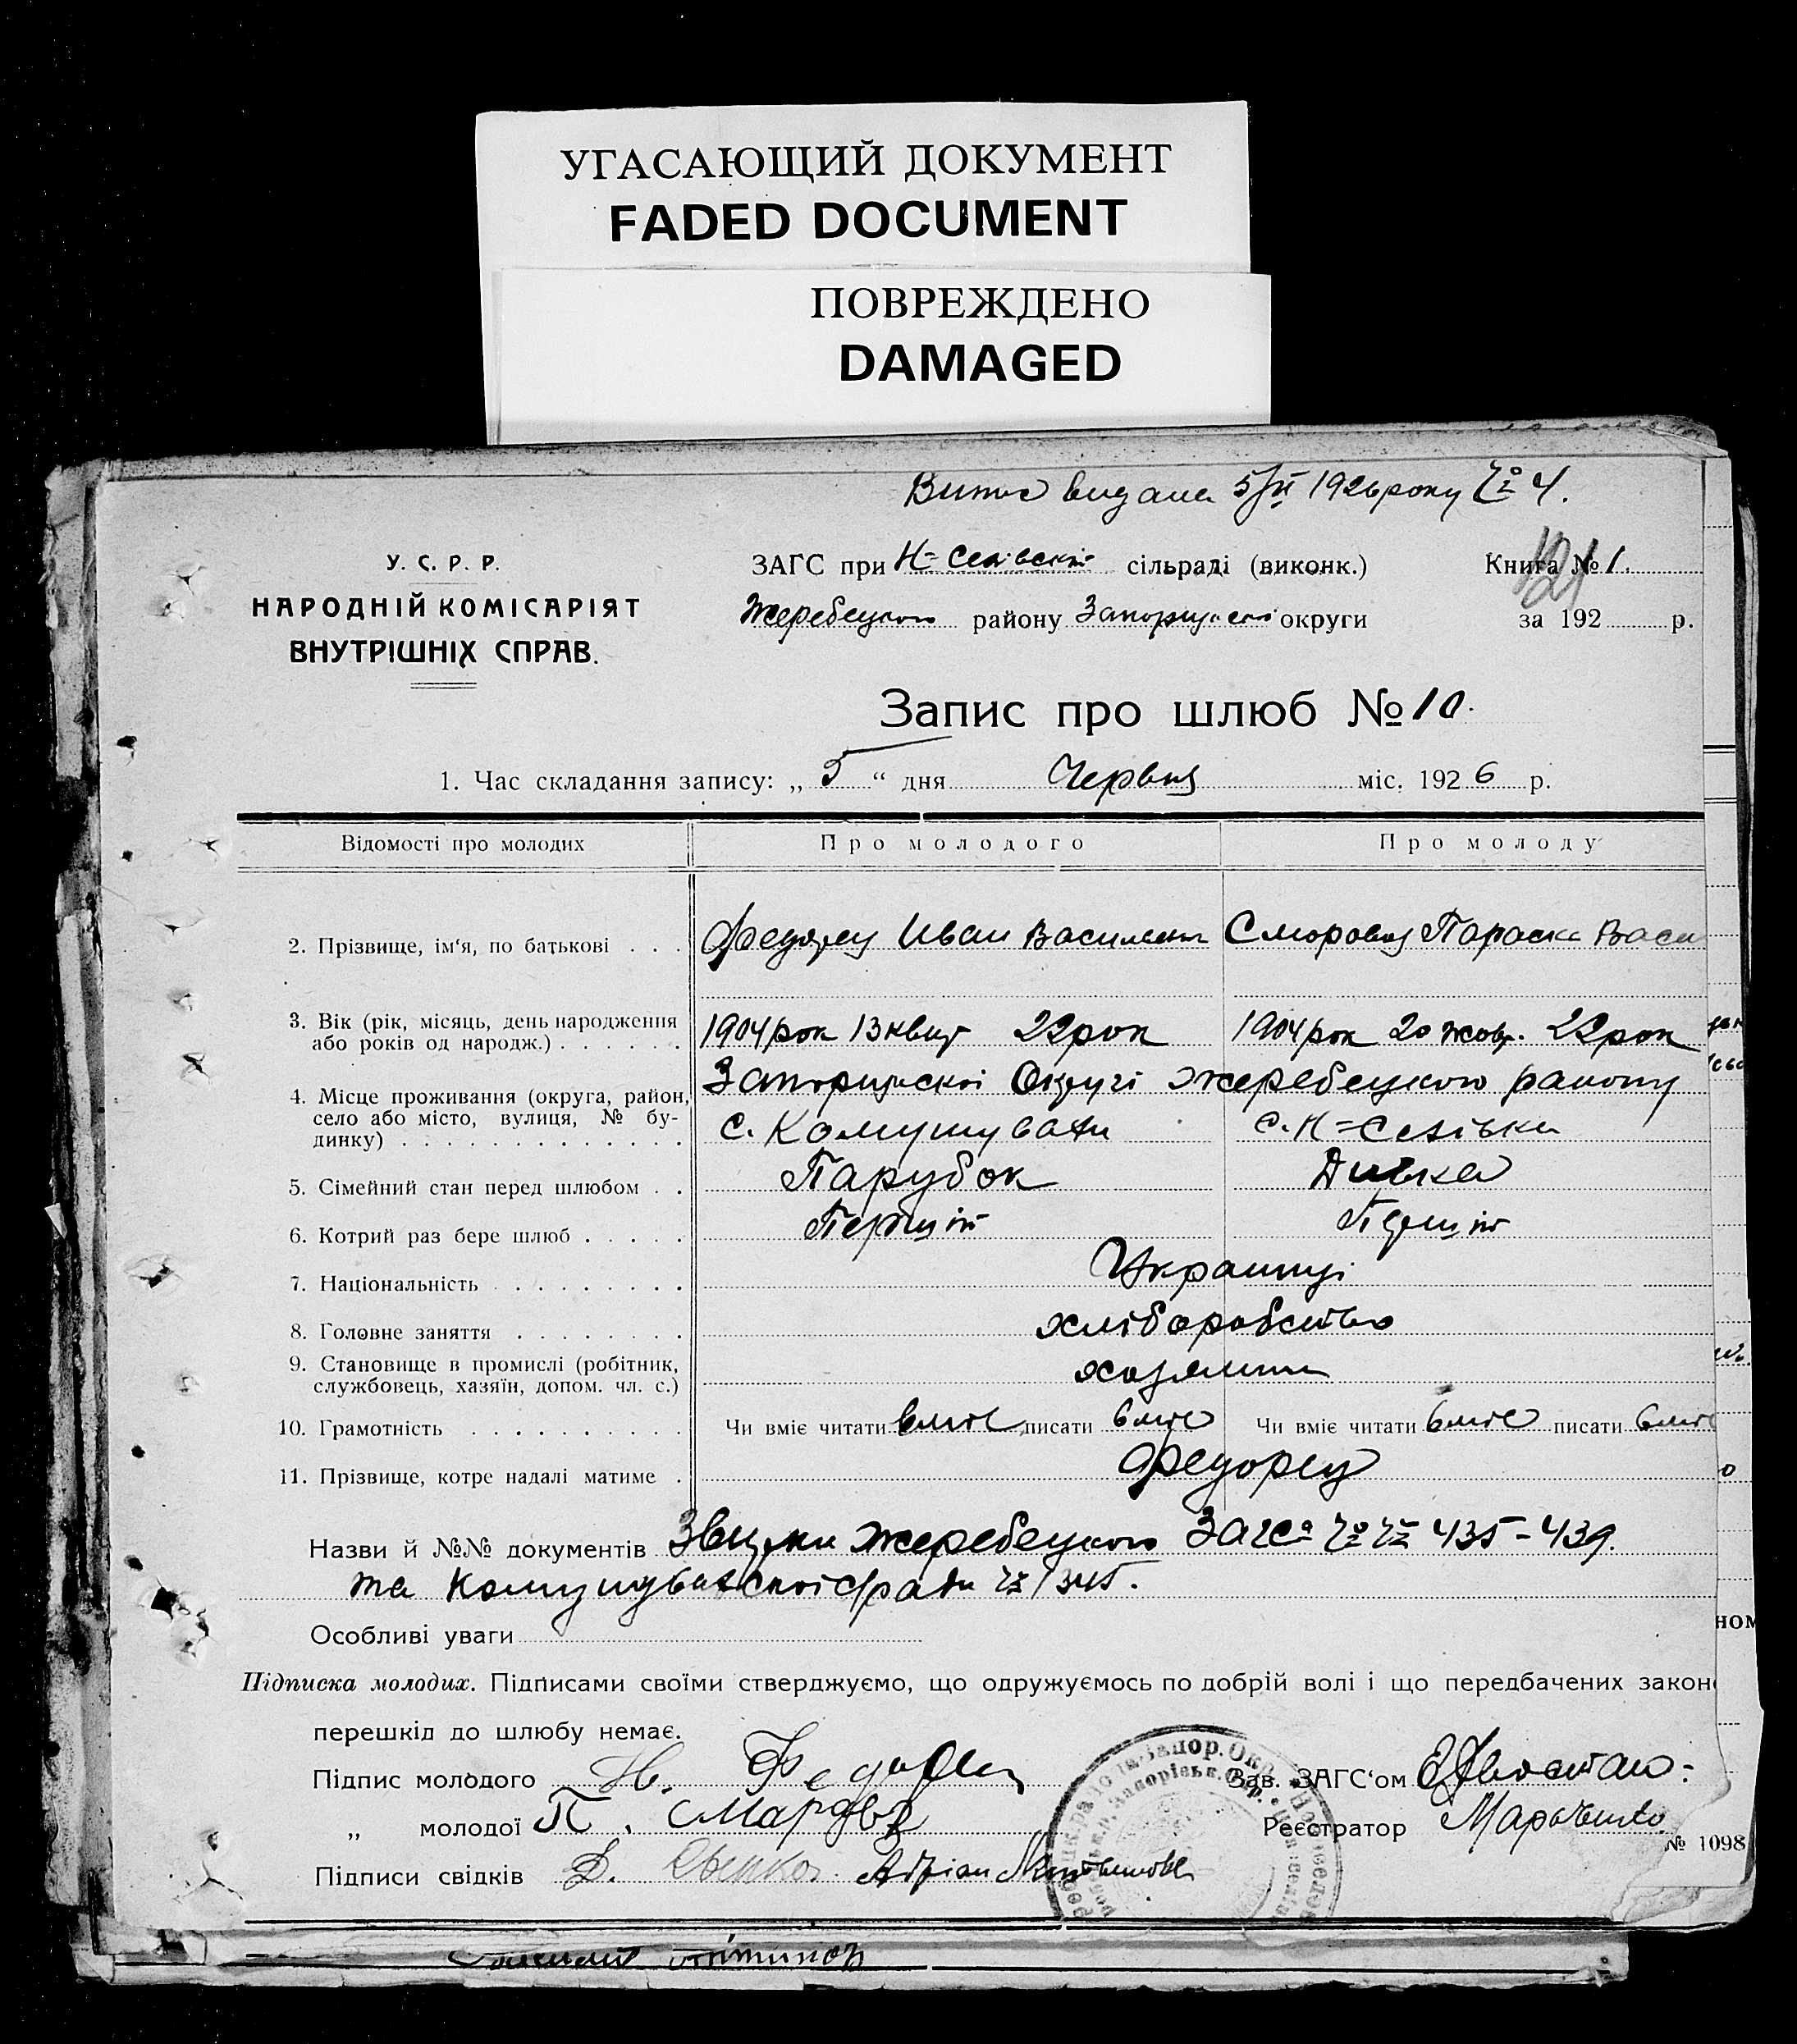 УГАСАЮЩИЙ ДОКУМЕНТ
FADED DOCUMENT
ПОВРЕЖДЕНО
DAMAGED
видана 5/VI 1926 року № 4.
У. С. Р. Р.
НАРОДНІЙ КОМІСАРІЯТ
ВНУТРІШНІХ СПРАВ.
ЗАГС при Н=Селівскій сільраді (виконк.)
Жеребецкого району Запоріжскоі округи
Книга № 1.
за 192 р.
Запис про шлюб № 10.
1. Час складання запису: „ 5 “ дня Червня міс. 192 6 р.
Відомості про молодих Про молодого Про молоду
2. Прізвище, ім‘я, по батькові . . . Федорец Иван Василевич Параска Васи
3. Вік (рік, місяць, день народження
або років од народж.) . . . . . . 1904 рок 13 квит 22 рок 1904 рок 20 жовт. 22 рок
4. Місце проживання (округа, район,
село або місто, вулиця, № бу-
динку) . . . . . . . . . . . . .
Запоріжскоі Округі Жеребецкого району
с. Комушувати с. Н=Селівки
5. Сімейний стан перед шлюбом . . Парубок Дивка
6. Котрий раз бере шлюб . . . . . Перший Перший
7. Національність . . . . . . . . . Украинці
8. Головне заняття . . . . . . . . хліборобство
9. Становище в промислі (робітник,
службовець, хазяїн, допом. чл. с.)
10. Грамотність . . . . . . . . . . Чи вміє читати вміє писати вміє Чи вміє читати вміє писати вміє
11. Прізвище, котре надалі матиме . Федорец
Назви й №№ документів Жеребецкого ЗАГСа №№ 435-439.
та Комушуватскоі с/ради № 1345.
Особливі уваги
Підписка молодих. Підписами своїми стверджуємо, що одружуємось по добрій волі і що передбачених закон
перешкід до шлюбу немає.
Підпис молодого Федорец
„ молодої П.
Підписи свідків Д.
Зав. ЗАГС‘ом
Реєстратор
№ 1098